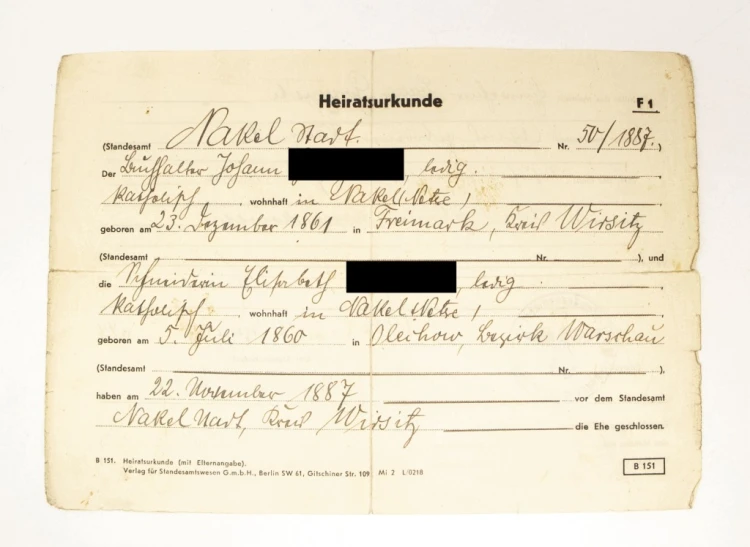 Heiratsurkunde
F 1
(Standesamt Nakel Stadt. Nr. 50/1887.)
Der Buchhalter Johann , ledig.
katholisch , wohnhaft in Nakel (Netze)
geboren am 23. Dezember 1861 in Freimark, Kreis Wirsitz
(Standesamt Nr. ), und
die Schneiderin Elisabeth , ledig
katholisch , wohnhaft in Nakel (Netze)
geboren am 5. Juli 1860 in Olechow, Bezirk Warschau
(Standesamt Nr. ),
haben am 22. November 1887 vor dem Standesamt
Nakel Stadt, Kreis Wirsitz die Ehe geschlossen.
B 151. Heiratsurkunde (mit Elternangabe).
Verlag für Standesamtswesen G.m.b.H., Berlin SW 61, Gitschiner Str. 109. Mi 2 L/0218
B 151